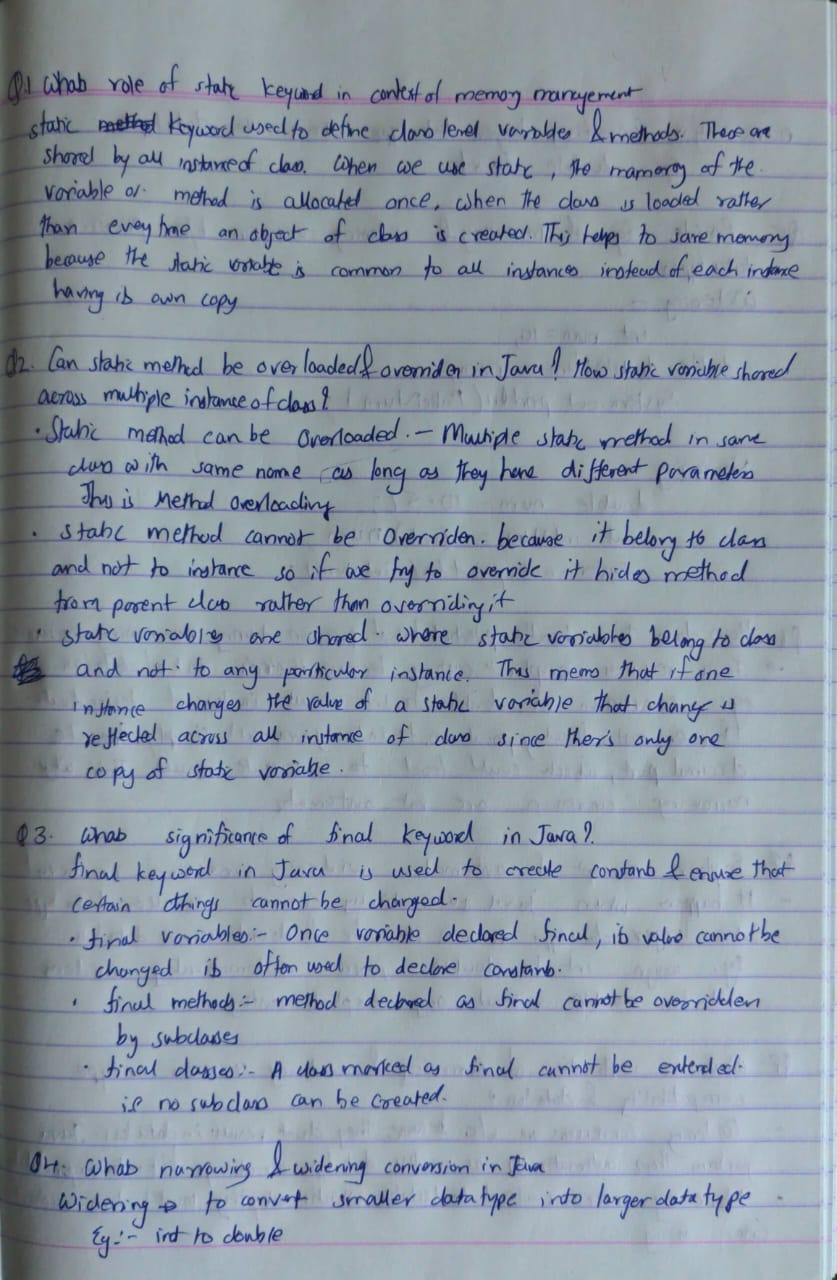 Q.1 What role of static keyword in context of memory mangement
static keyword used to define class level variables & methods. These are
shared by all instance of class. When we use static, the mamerory of the
variable or method is allocated once, when the class is loaded rather
than every time an object of class is created. This helps to save memory
because the static variable is common to all instances instead of each instance
having its own copy
Q2. Can static method be overloaded & overriden in Java? How static variable shared
across multiple instance of class?
• Static method can be Overloaded. – Multiple static method in same
class with same name as long as they have different parameters
This is Method overloading
• static method cannot be Overriden. because it belong to class
and not to instance so if we try to override it hides method
from parent class rather than overriding it
• static variables are shared. where static variables belong to class
and not to any particular instance. This means that if one
instance changes the value of a static variable that change is
reflected across all instance of class since there's only one
copy of static variable.
Q3. What significance of final keyword in Java?
final keyword in Java is used to create constant & ensure that
certain things cannot be changed.
• final variables:- Once variable declared final, its value cannot be
changed it often used to declare constants.
• final methods:- method declared as final cannot be overridden
by subclasses
• final classes:- A class marked as final cannot be extended.
ie no subclass can be created.
Q4. What narrowing & widening conversion in Java
Widening → to convert smaller datatype into larger data type
Eg:- int to double